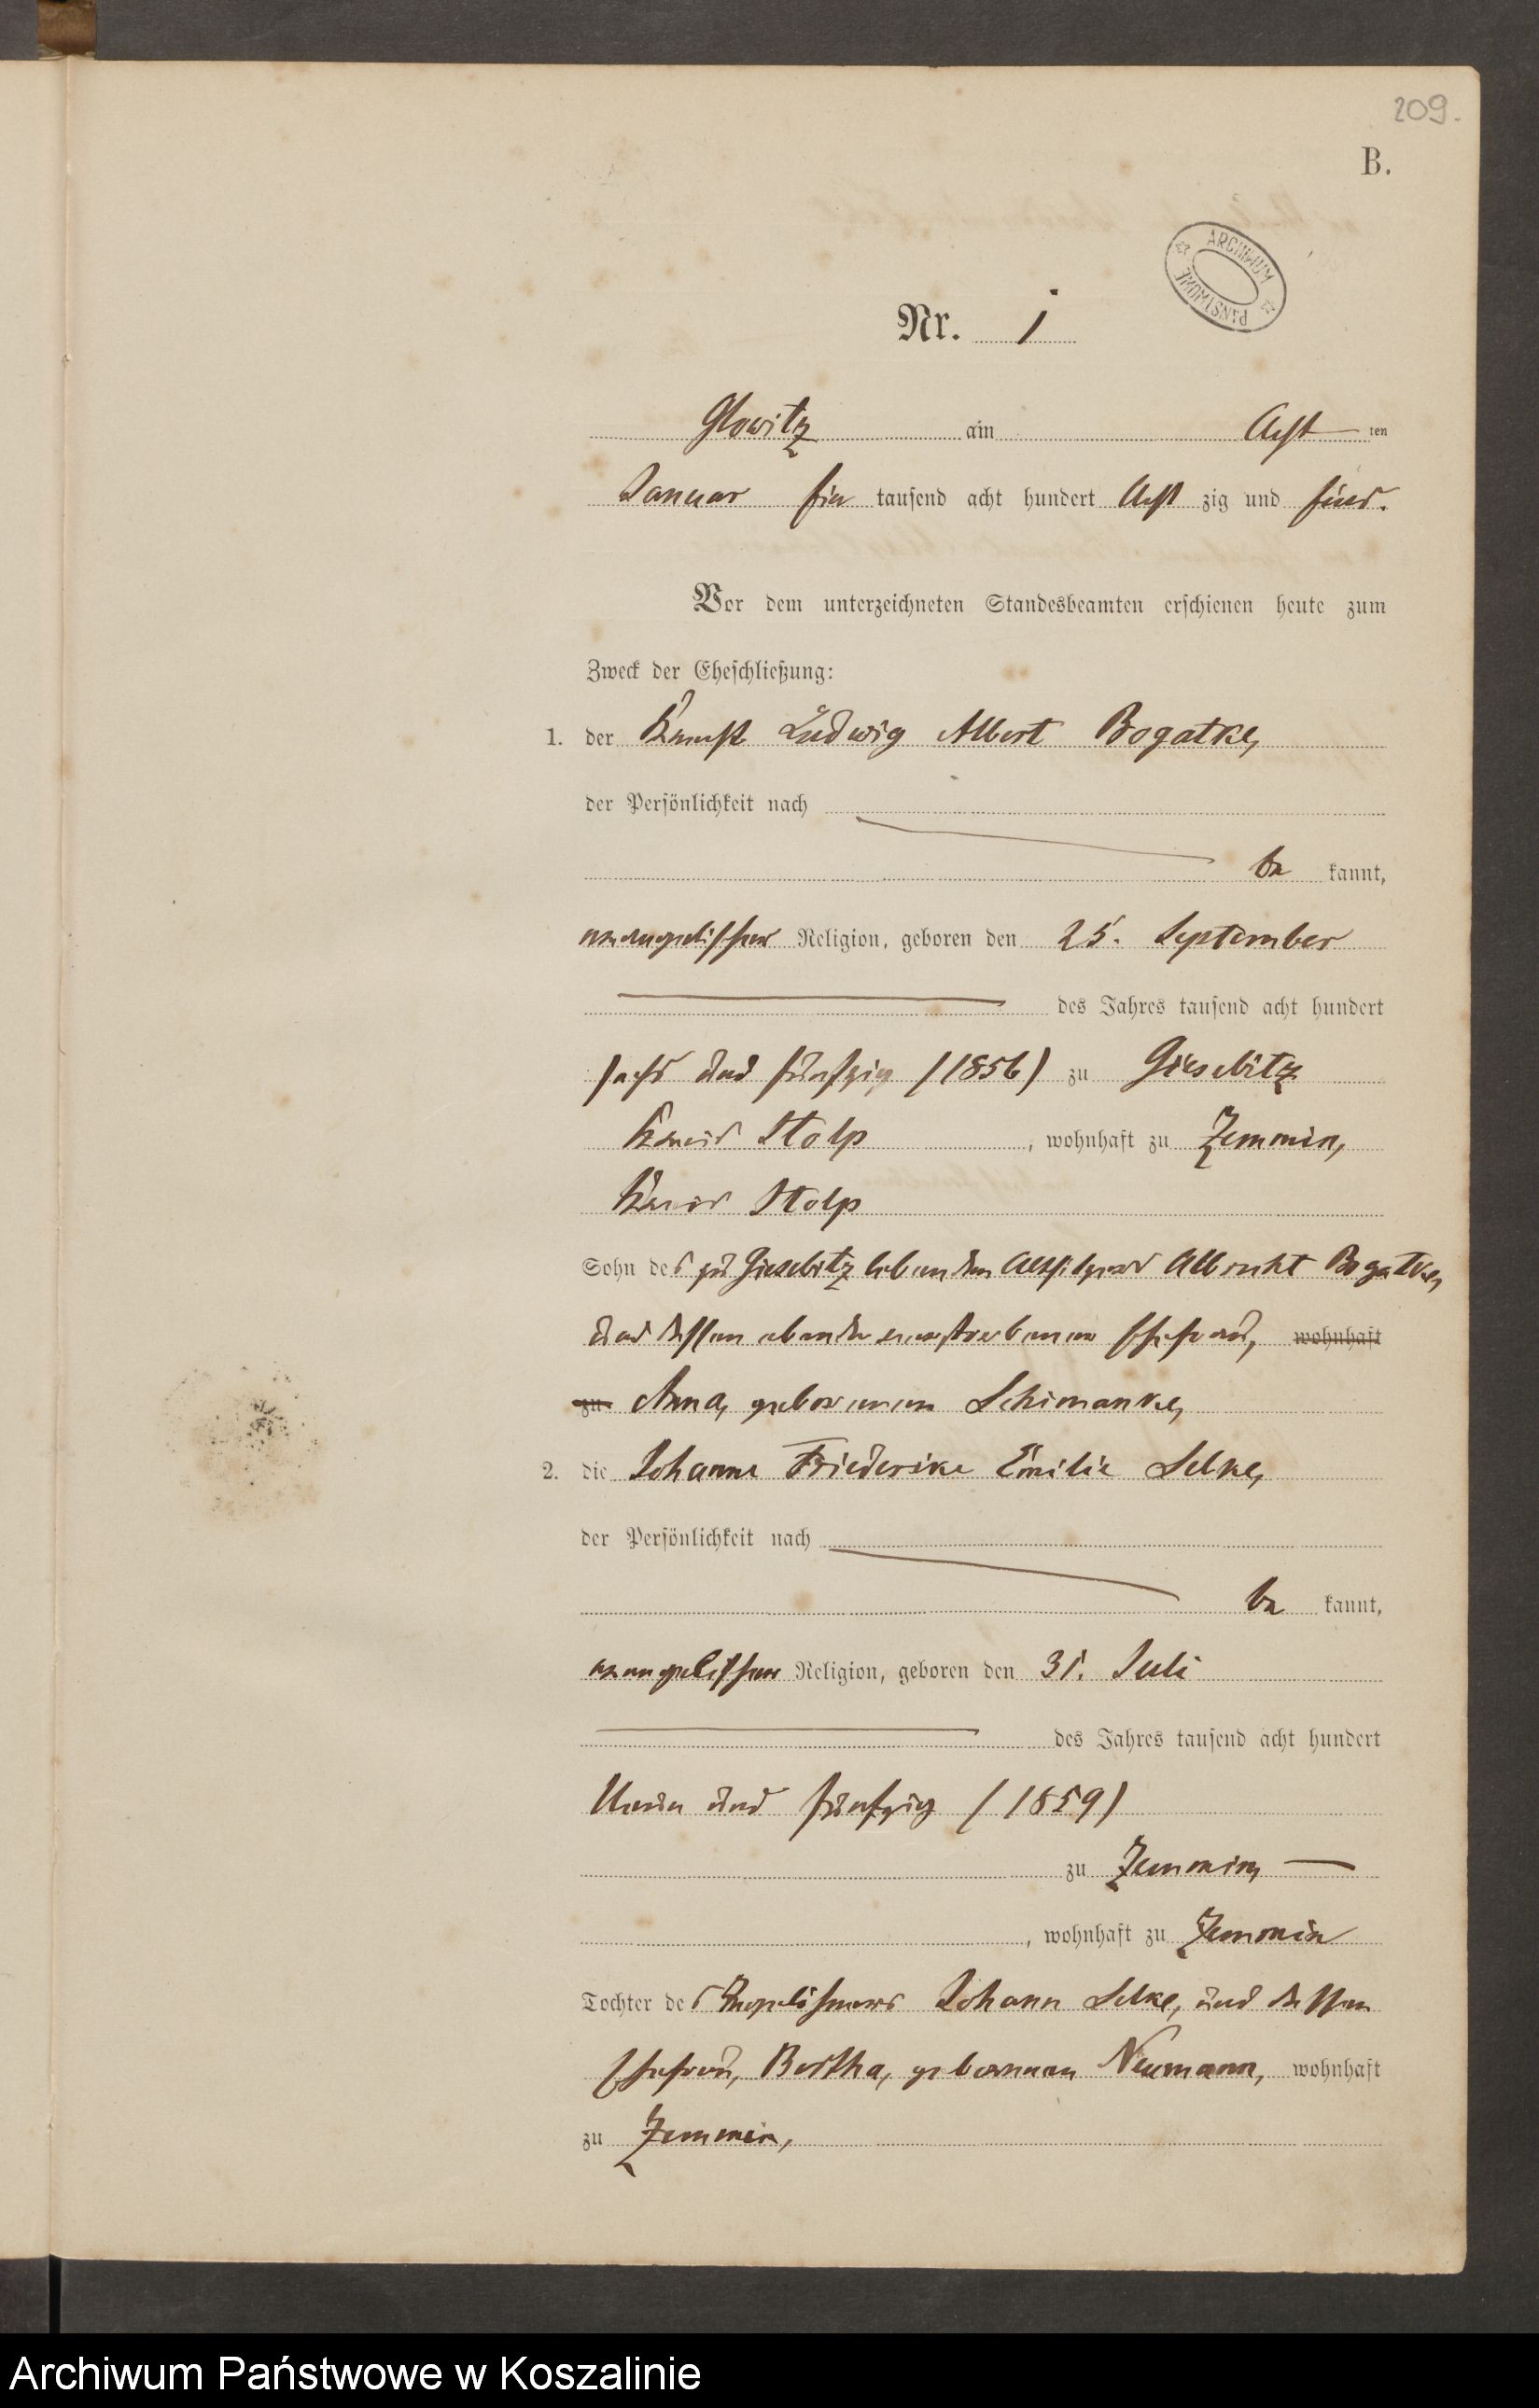 209.
B.
ARCHIWUM PAŃSTWOWE
Nr. 1
Glowitz am Acht ten
Januar tausend acht hundert Acht zig und
Vor dem unterzeichneten Standesbeamten erschienen heute zum
Zweck der Eheschließung:
1. der Knecht Ludwig Albert Bogatke,
der Persönlichkeit nach
be kannt,
evangelischer Religion, geboren den 25. September
des Jahres tausend acht hundert
sechs und fünfzig (1856) zu Giesebitz
Kreis Stolp, wohnhaft zu Zemmin,
Kreis Stolp
Sohn des zu Giesebitz lebenden Altsitzers Albrecht Bogatke,
und dessen ebenda verstorbenen Ehefrau, wohnhaft
zu Anna, geborenen Schimanke,
2. die Johanne Friederike Emilie Selke,
der Persönlichkeit nach
be kannt,
evangelischer Religion, geboren den 31. Juli
des Jahres tausend acht hundert
Neun und fünfzig (1859)
zu Zemmin,
, wohnhaft zu Zemmin
Tochter des Johann Selke, und dessen
Ehefrau, Bertha, geborenen Neumann, wohnhaft
zu Zemmin,
Archiwum Państwowe w Koszalinie